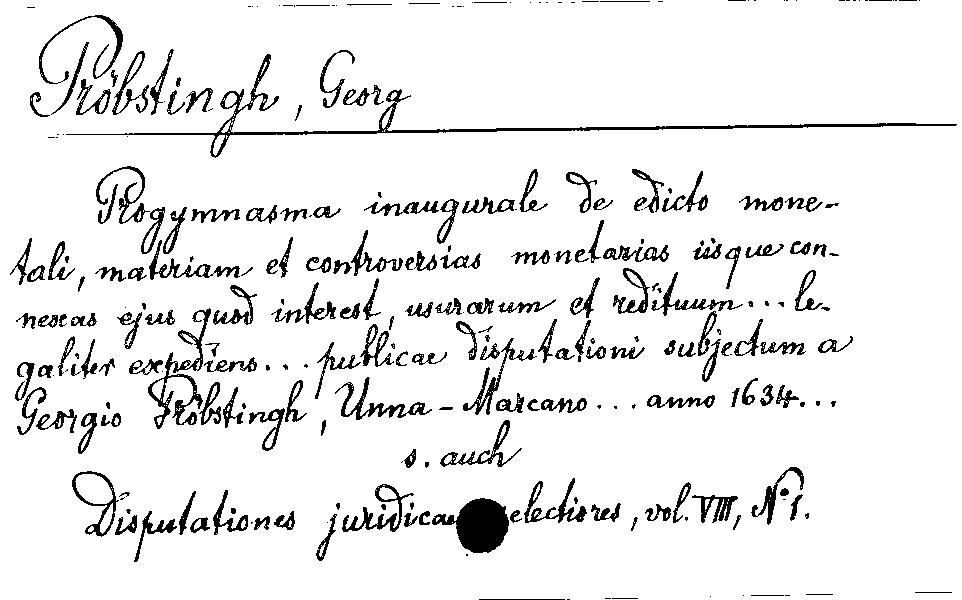 Pröbstingh, Georg
Progymnasma inaugurale de edicto mone-
tali, materiam et controversias monetarias iisque con-
nexas ejus quod interest, usurarum et redituum... le-
galiter expediens... publicae disputationi subjectum a
Georgio Pröbstingh, Unna-Marcano... anno 1634...
s. auch
Disputationes juridicae selectiores, vol. VIII, No 1.